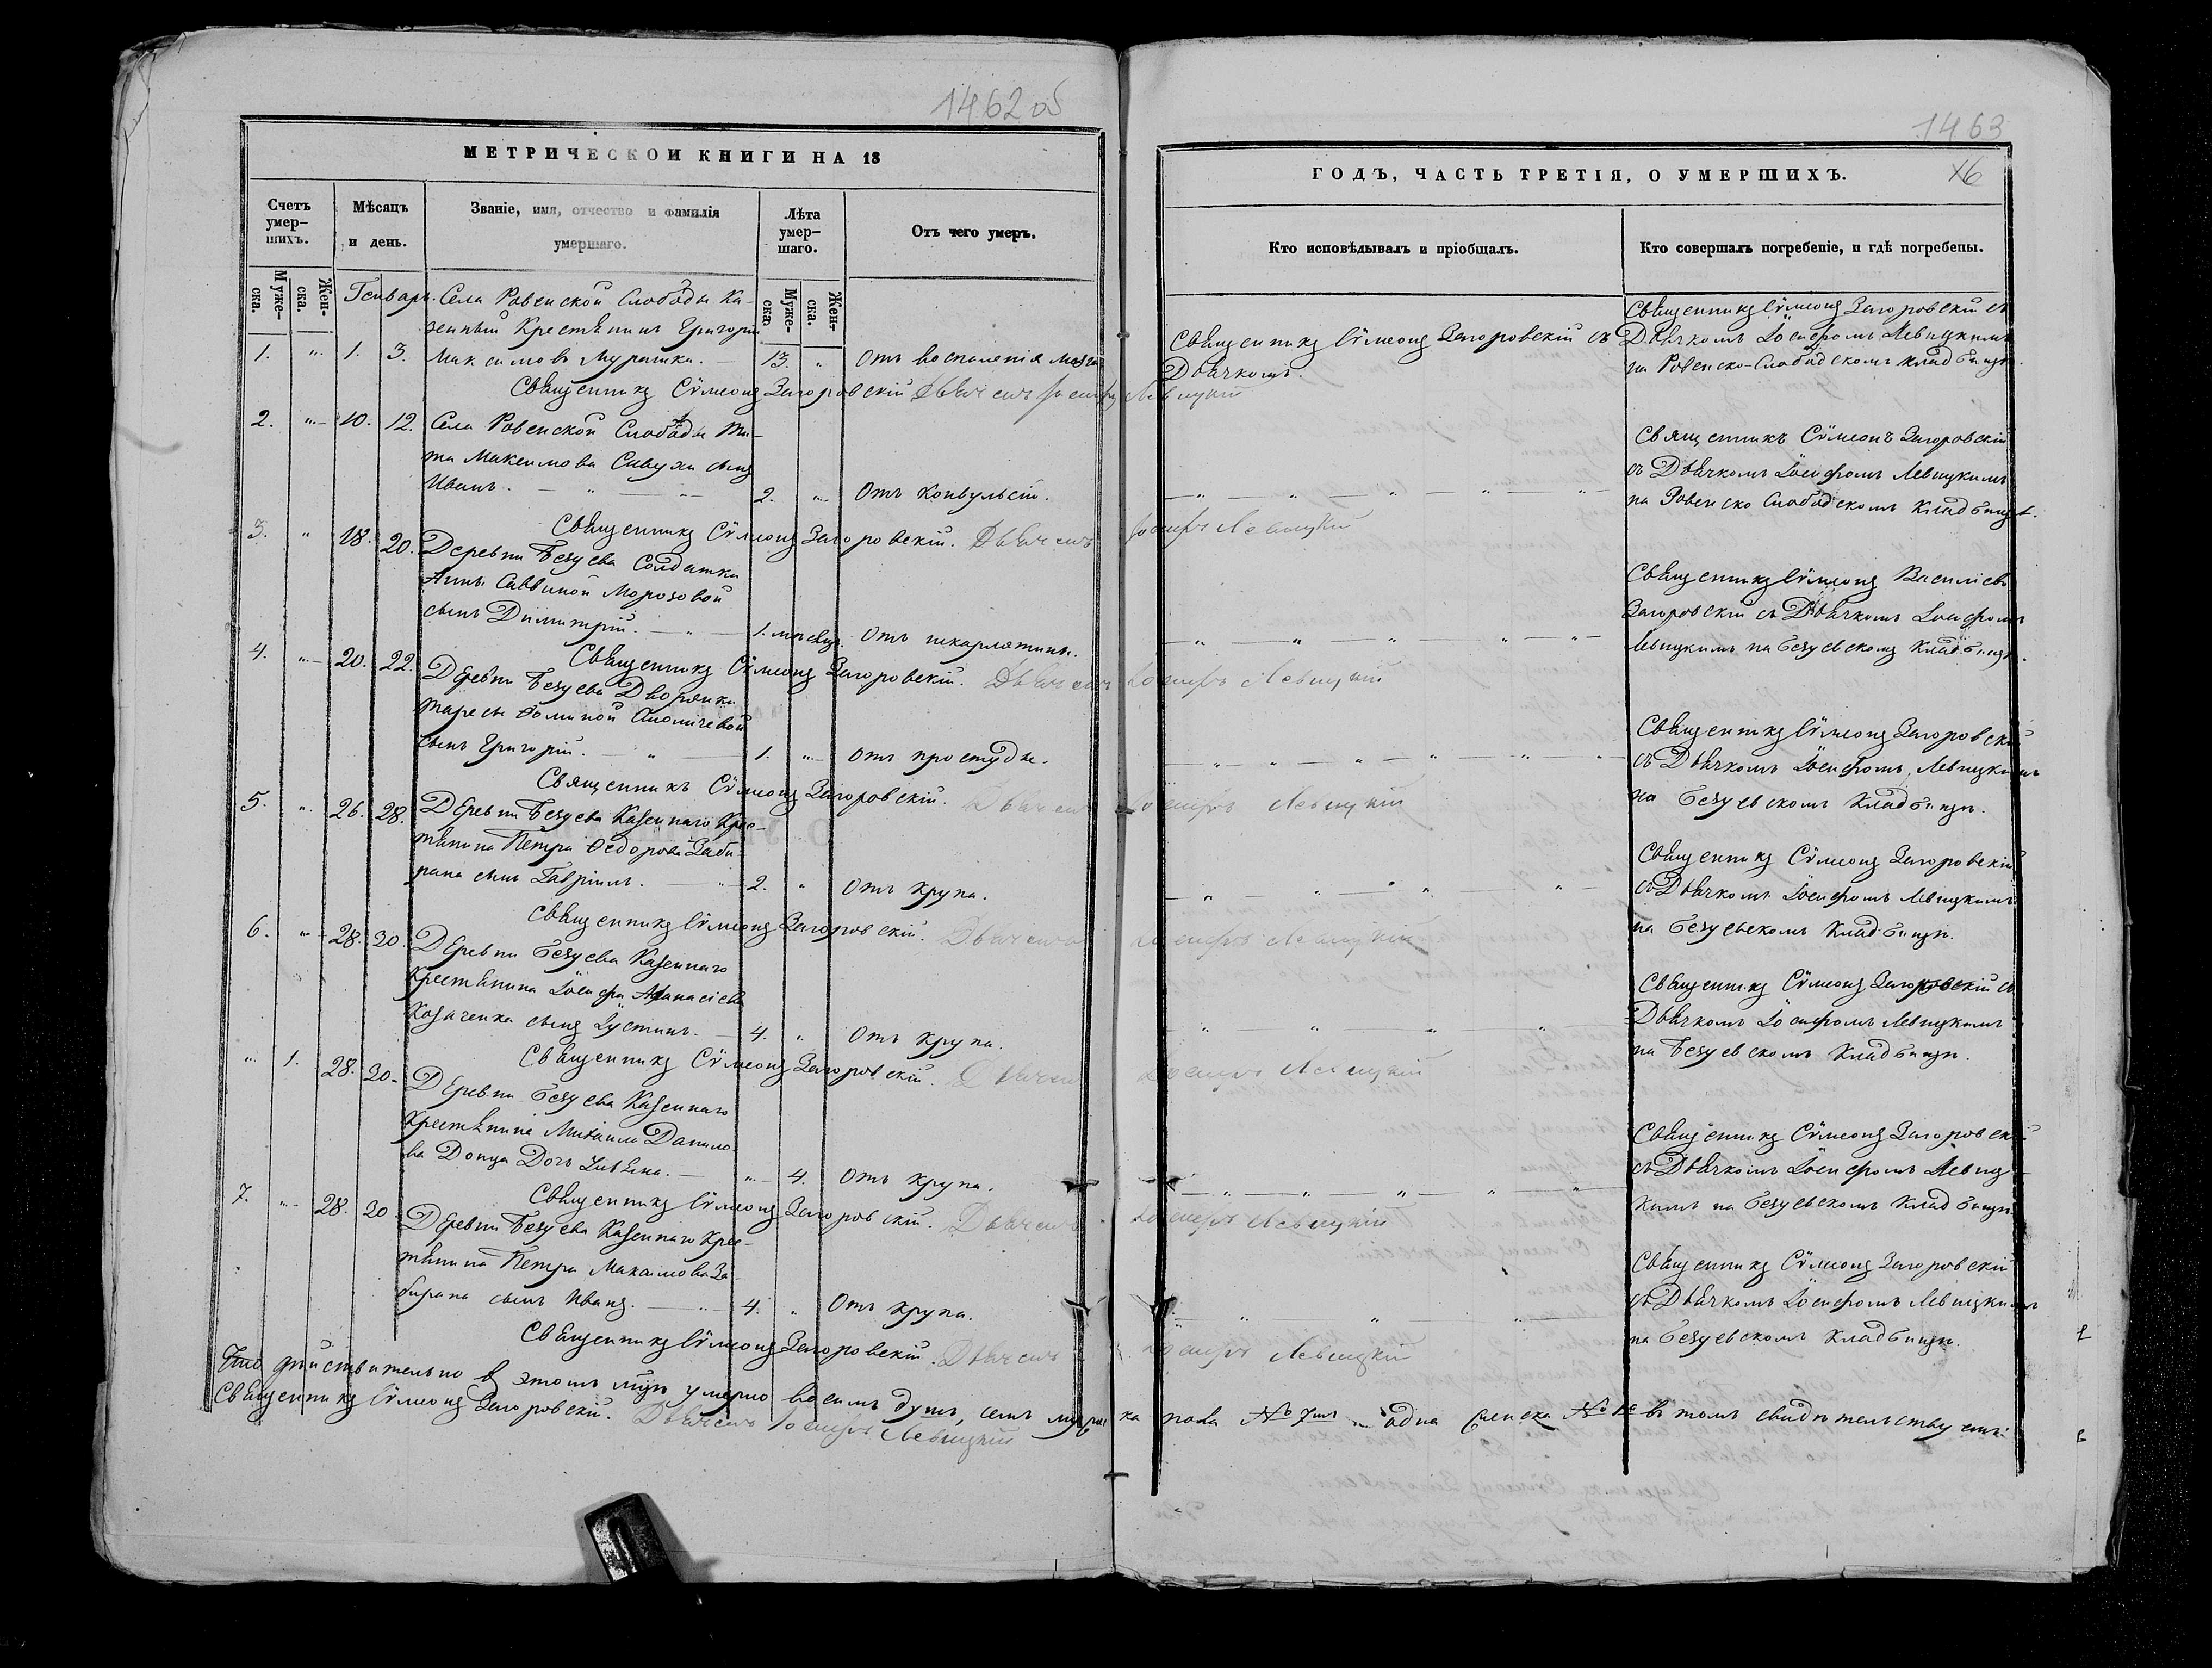 1462 об
МЕТРИЧЕСКОЙ КНИГИ НА 18
Счетъ умер-шихъ.
Мѣсяцъ и день.
Званіе, имя, отчество и фамилія умершаго.
Лѣта умер-шаго.
Отъ чего умеръ.
Муже-ска.
Жен-ска.
Муже-ска
Жен-ска.
Генварь.
Села Ровенской Слободы Ка-
зенный Крестьянинъ Григорій
1. " 1. 3. Максимовъ Мурашка. 13. " Отъ воспаленія мозга
Священникъ Сѵмеонъ Загоровскій Дьячекъ Іосифъ Левицкій
2. " 10. 12. Села Ровенской Слободы
та Максимова Сивухи сынъ
Иванъ. — " — 2. " Отъ конвульсій.
Священникъ Сѵмеонъ Загоровскій. Дьячекъ Іосифъ Левицкій
3. " 18. 20. Деревни Безуева Солдатки
Анны Саввиной Морозовой
сынъ Димитрій. — " — 1. мѣсяц. Отъ шкарлятины.
Священникъ Сѵмеонъ Загоровскій. Дьячекъ Іосифъ Левицкій
4. " 20. 22. Деревни Безуева Дворянки
Ѳоминой
сынъ Григорій. — " — 1. " Отъ простуды.
Священникъ Сѵмеонъ Загоровскій. Дьячекъ Іосифъ Левицкій
5. " 26. 28. Деревни Безуева Казеннаго Крес-
тьянина Петра Ѳедорова Заби-
рана сынъ Гавріилъ. — " — 2. " Отъ крупа.
Священникъ Сѵмеонъ Загоровскій. Дьячекъ Іосифъ Левицкій
6. " 28. 30. Деревни Безуева Казеннаго
Крестьянина Іосифа Аѳанасіева
Козаченка сынъ Іустинъ. — 4. " Отъ крупа.
Священникъ Сѵмеонъ Загоровскій. Дьячекъ Іосифъ Левицкій
" 1. 28. 30. Деревни Безуева Казеннаго
Крестьянина Михаила Данило-
ва Донца Дочь — " 4. Отъ крупа.
Священникъ Сѵмеонъ Загоровскій. Дьячекъ Іосифъ Левицкій
7. " 28. 30. Деревни Безуева Казеннаго Крес-
тьянина Петра Максимова За-
бирана сынъ Иванъ. — " — 4. " Отъ крупа.
Священникъ Сѵмеонъ Загоровскій. Дьячекъ Іосифъ Левицкій
Что дѣйствительно в этомъ м-цѣ умерло восемь душъ, семъ мужес
Священникъ Сѵмеонъ Загоровскій. Дьячекъ Іосифъ Левицкій
1463
ГОДЪ, ЧАСТЬ ТРЕТІЯ, О УМЕРШИХЪ.
Кто исповѣдывалъ и пріобщалъ.
Кто совершалъ погребеніе, и гдѣ погребены.
Священникъ Сѵмеонъ Загоровскій съ
Дьячкомъ.
Священникъ Сѵмеонъ Загоровскій съ
Дьячкомъ Іосифомъ Левицкимъ
на Ровенско-Слободскомъ кладбищѣ.
Священникъ Сѵмеонъ Загоровскій
съ Дьячкомъ Іосифомъ Левицкимъ
на Ровенско Слободскомъ Кладбищѣ.
Священникъ Сѵмеонъ Василіевъ
Загоровскій съ Дьячкомъ Іосифомъ
Левицкимъ на Безуевскомъ Кладбищѣ.
Священникъ Сѵмеонъ Загоровскій
съ Дьячкомъ Іосифомъ Левицкимъ
на Безуевскомъ Кладбищѣ.
Священникъ Сѵмеонъ Загоровскій
съ Дьячкомъ Іосифомъ Левицкимъ
на Безуевскомъ Кладбищѣ.
Священникъ Сѵмеонъ Загоровскій съ
Дьячкомъ Іосифомъ Левицкимъ
на Безуевскомъ Кладбищѣ.
Священникъ Сѵмеонъ Загоровскій
съ Дьячкомъ Іосифомъ Левиц-
кимъ на Безуевскомъ Кладбищѣ.
Священникъ Сѵмеонъ Загоровскій
съ Дьячкомъ Іосифомъ Левицкимъ
на Безуевскомъ Кладбищѣ.
ка пола № 7мъ и одна женска № 1й въ томъ свидѣтельствуемъ: